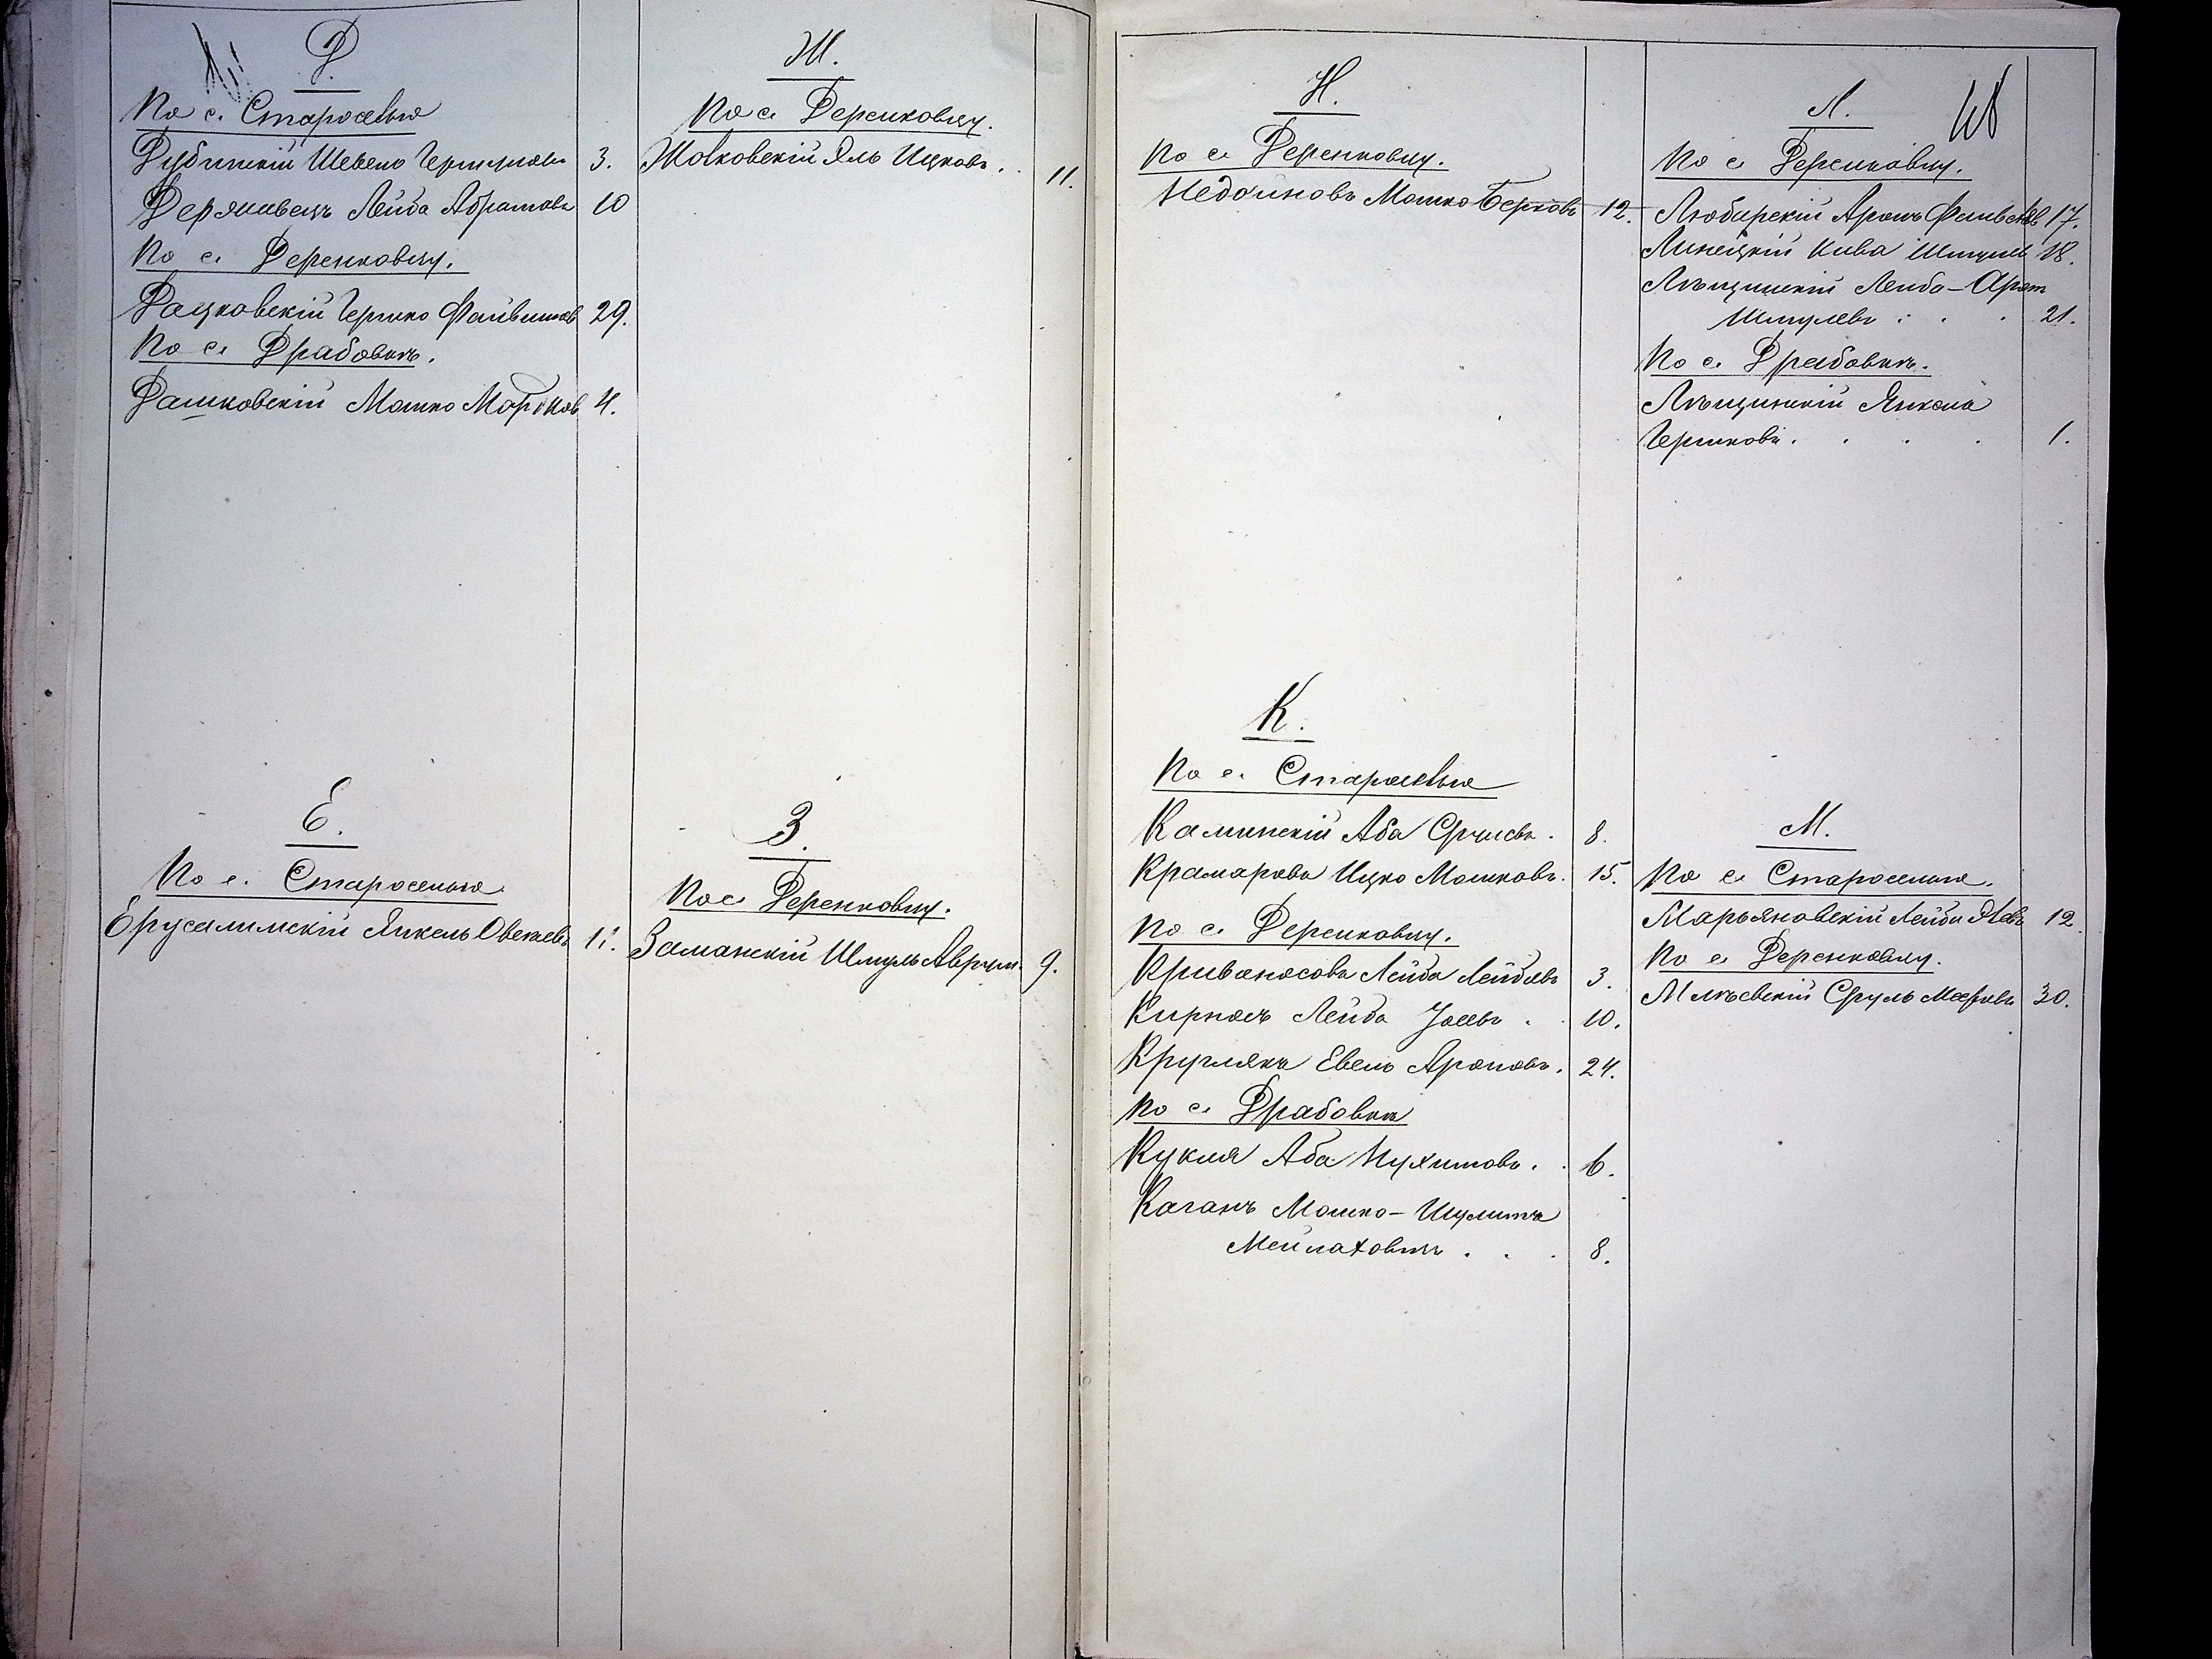 Д.
По с. Староселью
Дубинскій Шевель Гершунов 3.
Державецъ Лейба Абрамовъ 10
По с. Деренковцу.
Дацковскій Гершко Файвишев 29.
По с. Драбовкѣ.
Дашковскій Мошко Мордков 4.
Е.
По с. Староселью.
Ерусалимскій Янкель Овсеевъ 11.
Ж.
По с. Деренковцу.
Жовковскій Яль Ицковъ. 11.
З.
По с. Деренковцу.
Заманскій Шмуль Аврум. 9.
Н.
По с. Деренковцу.
Недоиновъ Мошко Берковъ 12.
К.
По с. Староселью
Каминскій Аба Срулевъ. 8.
Крамаровъ Ицко Мошковъ. 15.
По с. Деренковцу.
Кривоносовъ Лейба Лейбовъ 3.
Кирносъ Лейба Іосевъ. 10.
Круглякъ Евель Ароновъ. 24.
По с. Драбовкѣ
Кукля Аба Нухимовъ. 6.
Каганъ Мошко-Шулимъ
Мейлаховичъ . . . 8.
Л. 18
По с. Деренковцу.
Любарскій Аронъ 17.
Линецкій Кива Шмулев 18.
Лѣщинскій Лейба-Арон
Шмулевъ . . . 21.
По с. Драбовкѣ.
Лѣщинскій Янкель
Гершковъ. . . . 1.
М.
По с. Староселью.
Марьяновскій Лейба 12.
По с. Деренковцу.
Сруль Мееровъ 30.